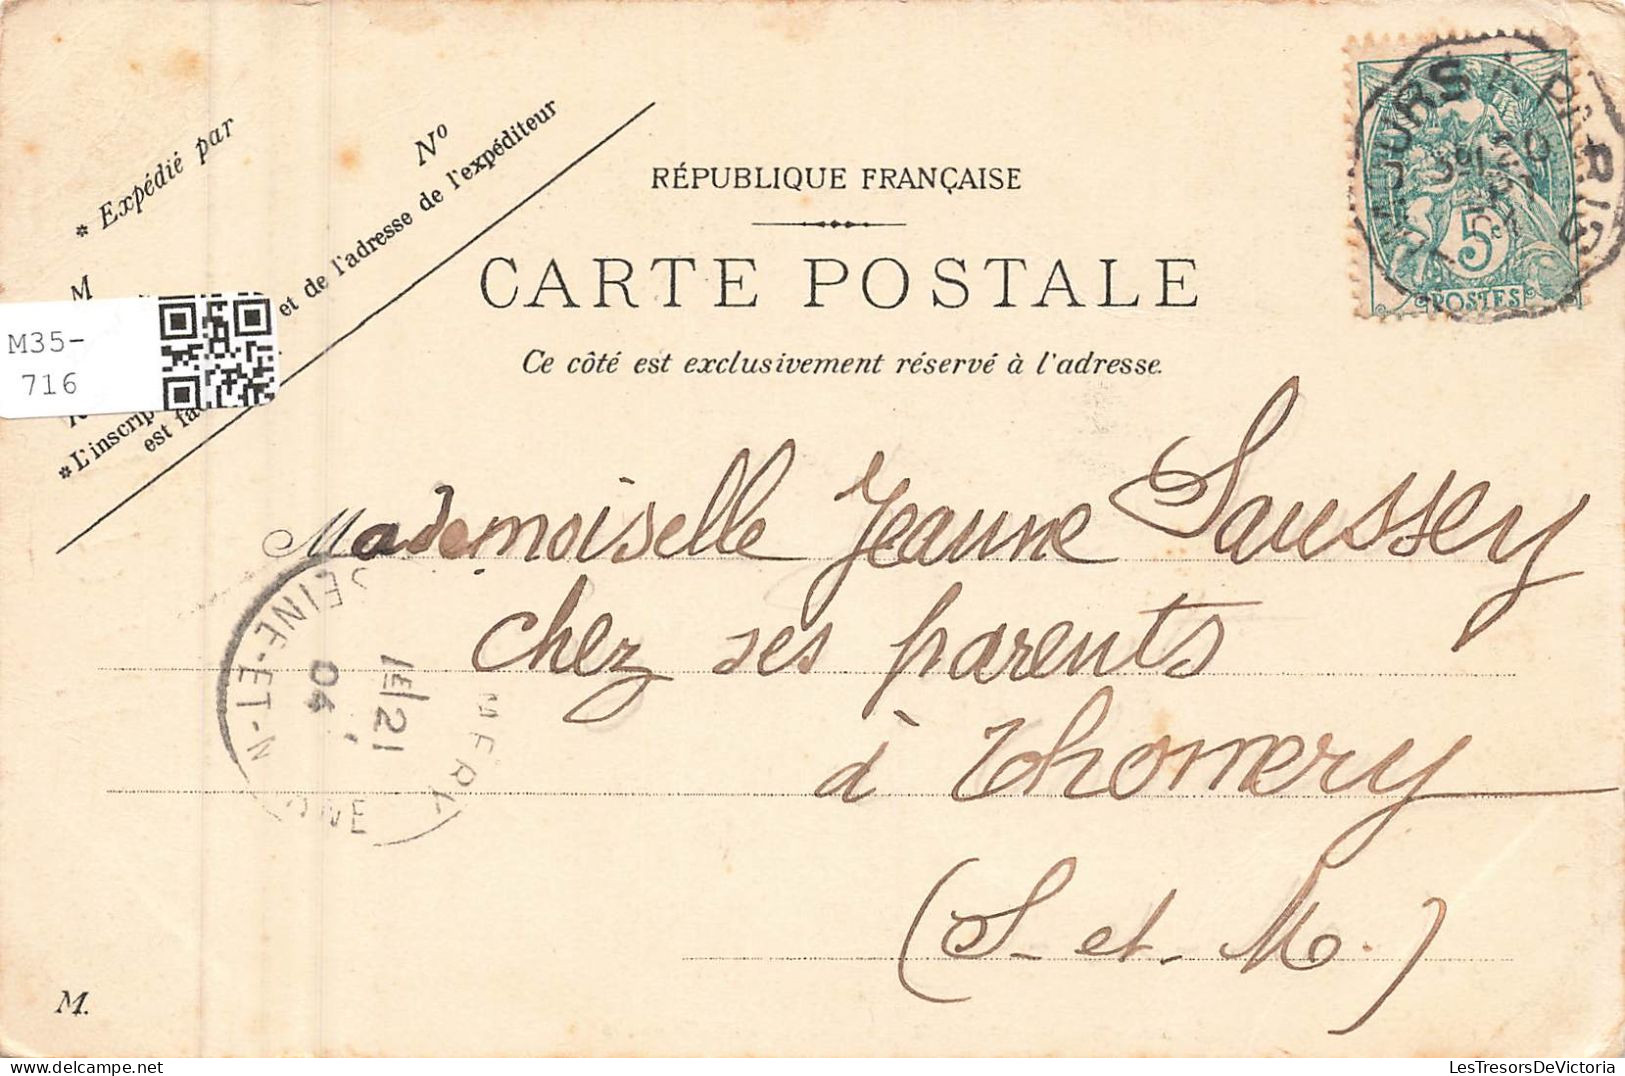 * Expédié par
N°
M
et de l'adresse de l'expéditeur
*L'inscrip
est fac
M35-
716
RÉPUBLIQUE FRANÇAISE
CARTE POSTALE
Ce côté est exclusivement réservé à l'adresse.
5c
POSTES
Mademoiselle Jeanne Saussey
chez ses parents
à Thomery
(S-et-M.)
SEINE-ET-M
1E/21
04
M.
LesTresorsDeVictoria